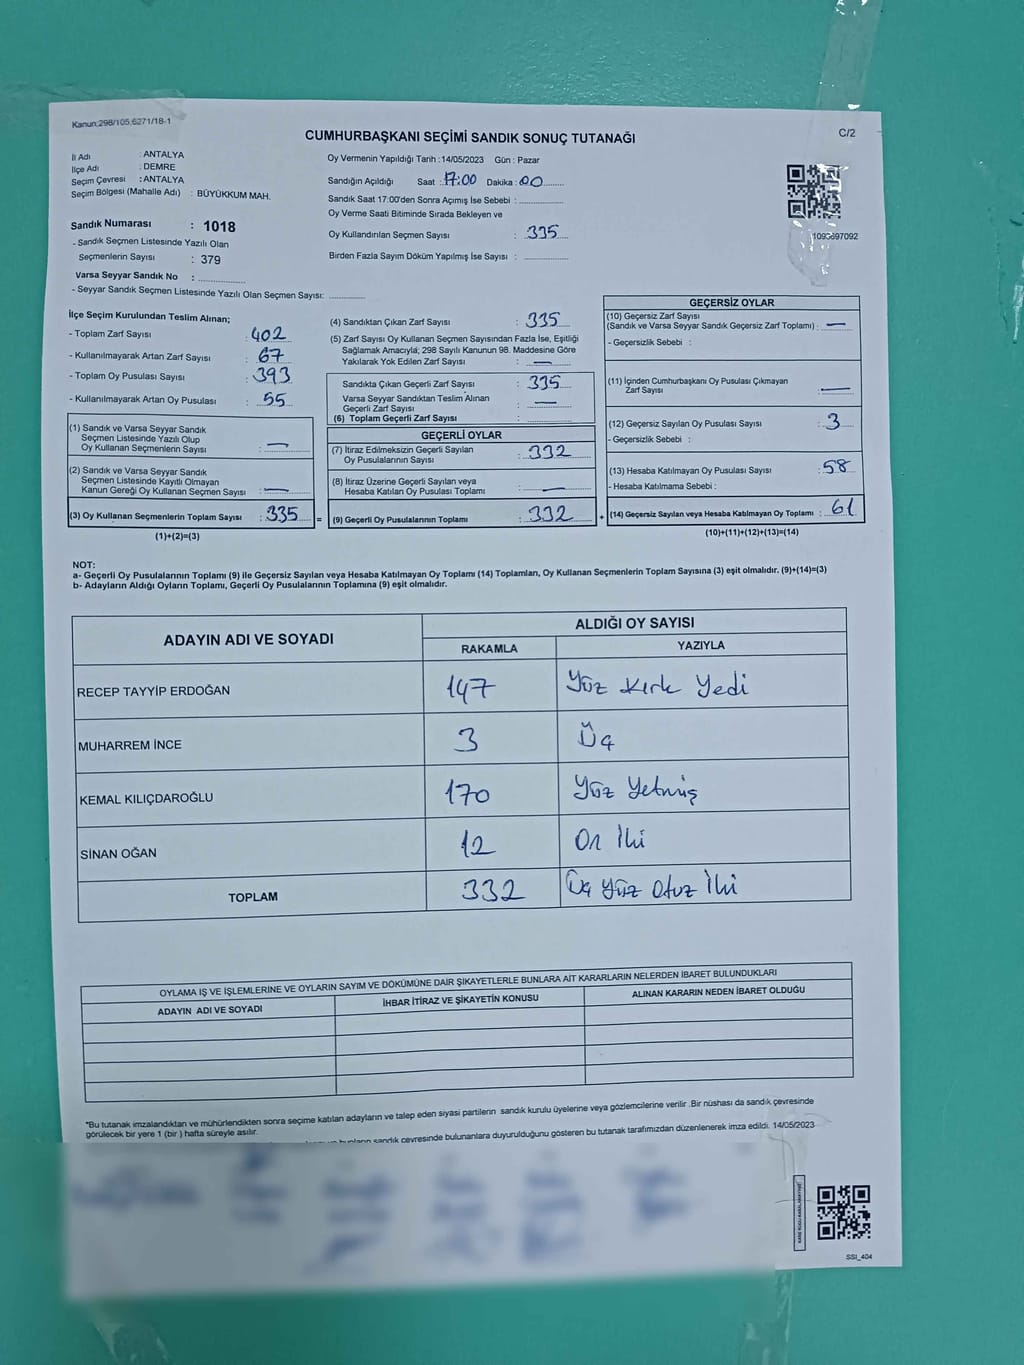 Kanun:298/105,6271/18-1
CUMHURBAŞKANI SEÇİMİ SANDIK SONUÇ TUTANAĞI
C/2
İl Adı : ANTALYA
İlçe Adı : DEMRE
Seçim Çevresi : ANTALYA
Seçim Bölgesi (Mahalle Adı) : BÜYÜKKUM MAH.
Oy Vermenin Yapıldığı Tarih :14/05/2023 Gün : Pazar
Sandığın Açıldığı Saat :17:00 Dakika :00
Sandık Saat 17:00'den Sonra Açımış İse Sebebi :
Oy Verme Saati Bitiminde Sırada Bekleyen ve
Oy Kullandırılan Seçmen Sayısı : 335
Birden Fazla Sayım Döküm Yapılmış İse Sayısı :
Sandık Numarası : 1018
- Sandık Seçmen Listesinde Yazılı Olan
Seçmenlerin Sayısı : 379
Varsa Seyyar Sandık No :
- Seyyar Sandık Seçmen Listesinde Yazılı Olan Seçmen Sayısı:
1093697092
İlçe Seçim Kurulundan Teslim Alınan;
- Toplam Zarf Sayısı : 402
- Kullanılmayarak Artan Zarf Sayısı : 67
- Toplam Oy Pusulası Sayısı : 393
- Kullanılmayarak Artan Oy Pusulası : 55
(1) Sandık ve Varsa Seyyar Sandık
Seçmen Listesinde Yazılı Olup
Oy Kullanan Seçmenlerin Sayısı : —
(2) Sandık ve Varsa Seyyar Sandık
Seçmen Listesinde Kayıtlı Olmayan
Kanun Gereği Oy Kullanan Seçmen Sayısı : —
(3) Oy Kullanan Seçmenlerin Toplam Sayısı : 335 =
(1)+(2)=(3)
(4) Sandıktan Çıkan Zarf Sayısı : 335
(5) Zarf Sayısı Oy Kullanan Seçmen Sayısından Fazla İse, Eşitliği
Sağlamak Amacıyla; 298 Sayılı Kanunun 98. Maddesine Göre
Yakılarak Yok Edilen Zarf Sayısı : —
Sandıkta Çıkan Geçerli Zarf Sayısı : 335
Varsa Seyyar Sandıktan Teslim Alınan
Geçerli Zarf Sayısı : —
(6) Toplam Geçerli Zarf Sayısı :
GEÇERLİ OYLAR
(7) İtiraz Edilmeksizin Geçerli Sayılan
Oy Pusulalarının Sayısı : 332
(8) İtiraz Üzerine Geçerli Sayılan veya
Hesaba Katılan Oy Pusulası Toplamı : —
(9) Geçerli Oy Pusulalarının Toplamı : 332 +
GEÇERSİZ OYLAR
(10) Geçersiz Zarf Sayısı
(Sandık ve Varsa Seyyar Sandık Geçersiz Zarf Toplamı) : —
- Geçersizlik Sebebi :
(11) İçinden Cumhurbaşkanı Oy Pusulası Çıkmayan
Zarf Sayısı : —
(12) Geçersiz Sayılan Oy Pusulası Sayısı : 3
- Geçersizlik Sebebi :
(13) Hesaba Katılmayan Oy Pusulası Sayısı : 58
- Hesaba Katılmama Sebebi :
(14) Geçersiz Sayılan veya Hesaba Katılmayan Oy Toplamı : 61
(10)+(11)+(12)+(13)=(14)
NOT:
a- Geçerli Oy Pusulalarının Toplamı (9) ile Geçersiz Sayılan veya Hesaba Katılmayan Oy Toplamı (14) Toplamları, Oy Kullanan Seçmenlerin Toplam Sayısına (3) eşit olmalıdır. (9)+(14)=(3)
b- Adayların Aldığı Oyların Toplamı, Geçerli Oy Pusulalarının Toplamına (9) eşit olmalıdır.
ADAYIN ADI VE SOYADI
ALDIĞI OY SAYISI
RAKAMLA YAZIYLA
RECEP TAYYİP ERDOĞAN 147 Yüz Kırk Yedi
MUHARREM İNCE 3 Üç
KEMAL KILIÇDAROĞLU 170 Yüz Yetmiş
SİNAN OĞAN 12 On İki
TOPLAM 332 Üç Yüz Otuz İki
OYLAMA İŞ VE İŞLEMLERİNE VE OYLARIN SAYIM VE DÖKÜMÜNE DAİR ŞİKAYETLERLE BUNLARA AİT KARARLARIN NELERDEN İBARET BULUNDUKLARI
ADAYIN ADI VE SOYADI İHBAR İTİRAZ VE ŞİKAYETİN KONUSU ALINAN KARARIN NEDEN İBARET OLDUĞU
*Bu tutanak imzalandıktan ve mühürlendikten sonra seçime katılan adayların ve talep eden siyasi partilerin sandık kurulu üyelerine veya gözlemcilerine verilir .Bir nüshası da sandık çevresinde
görülecek bir yere 1 (bir ) hafta süreyle asılır.
sandık çevresinde bulunanlara duyurulduğunu gösteren bu tutanak tarafımızdan düzenlenerek imza edildi. 14/05/2023
SSI_404